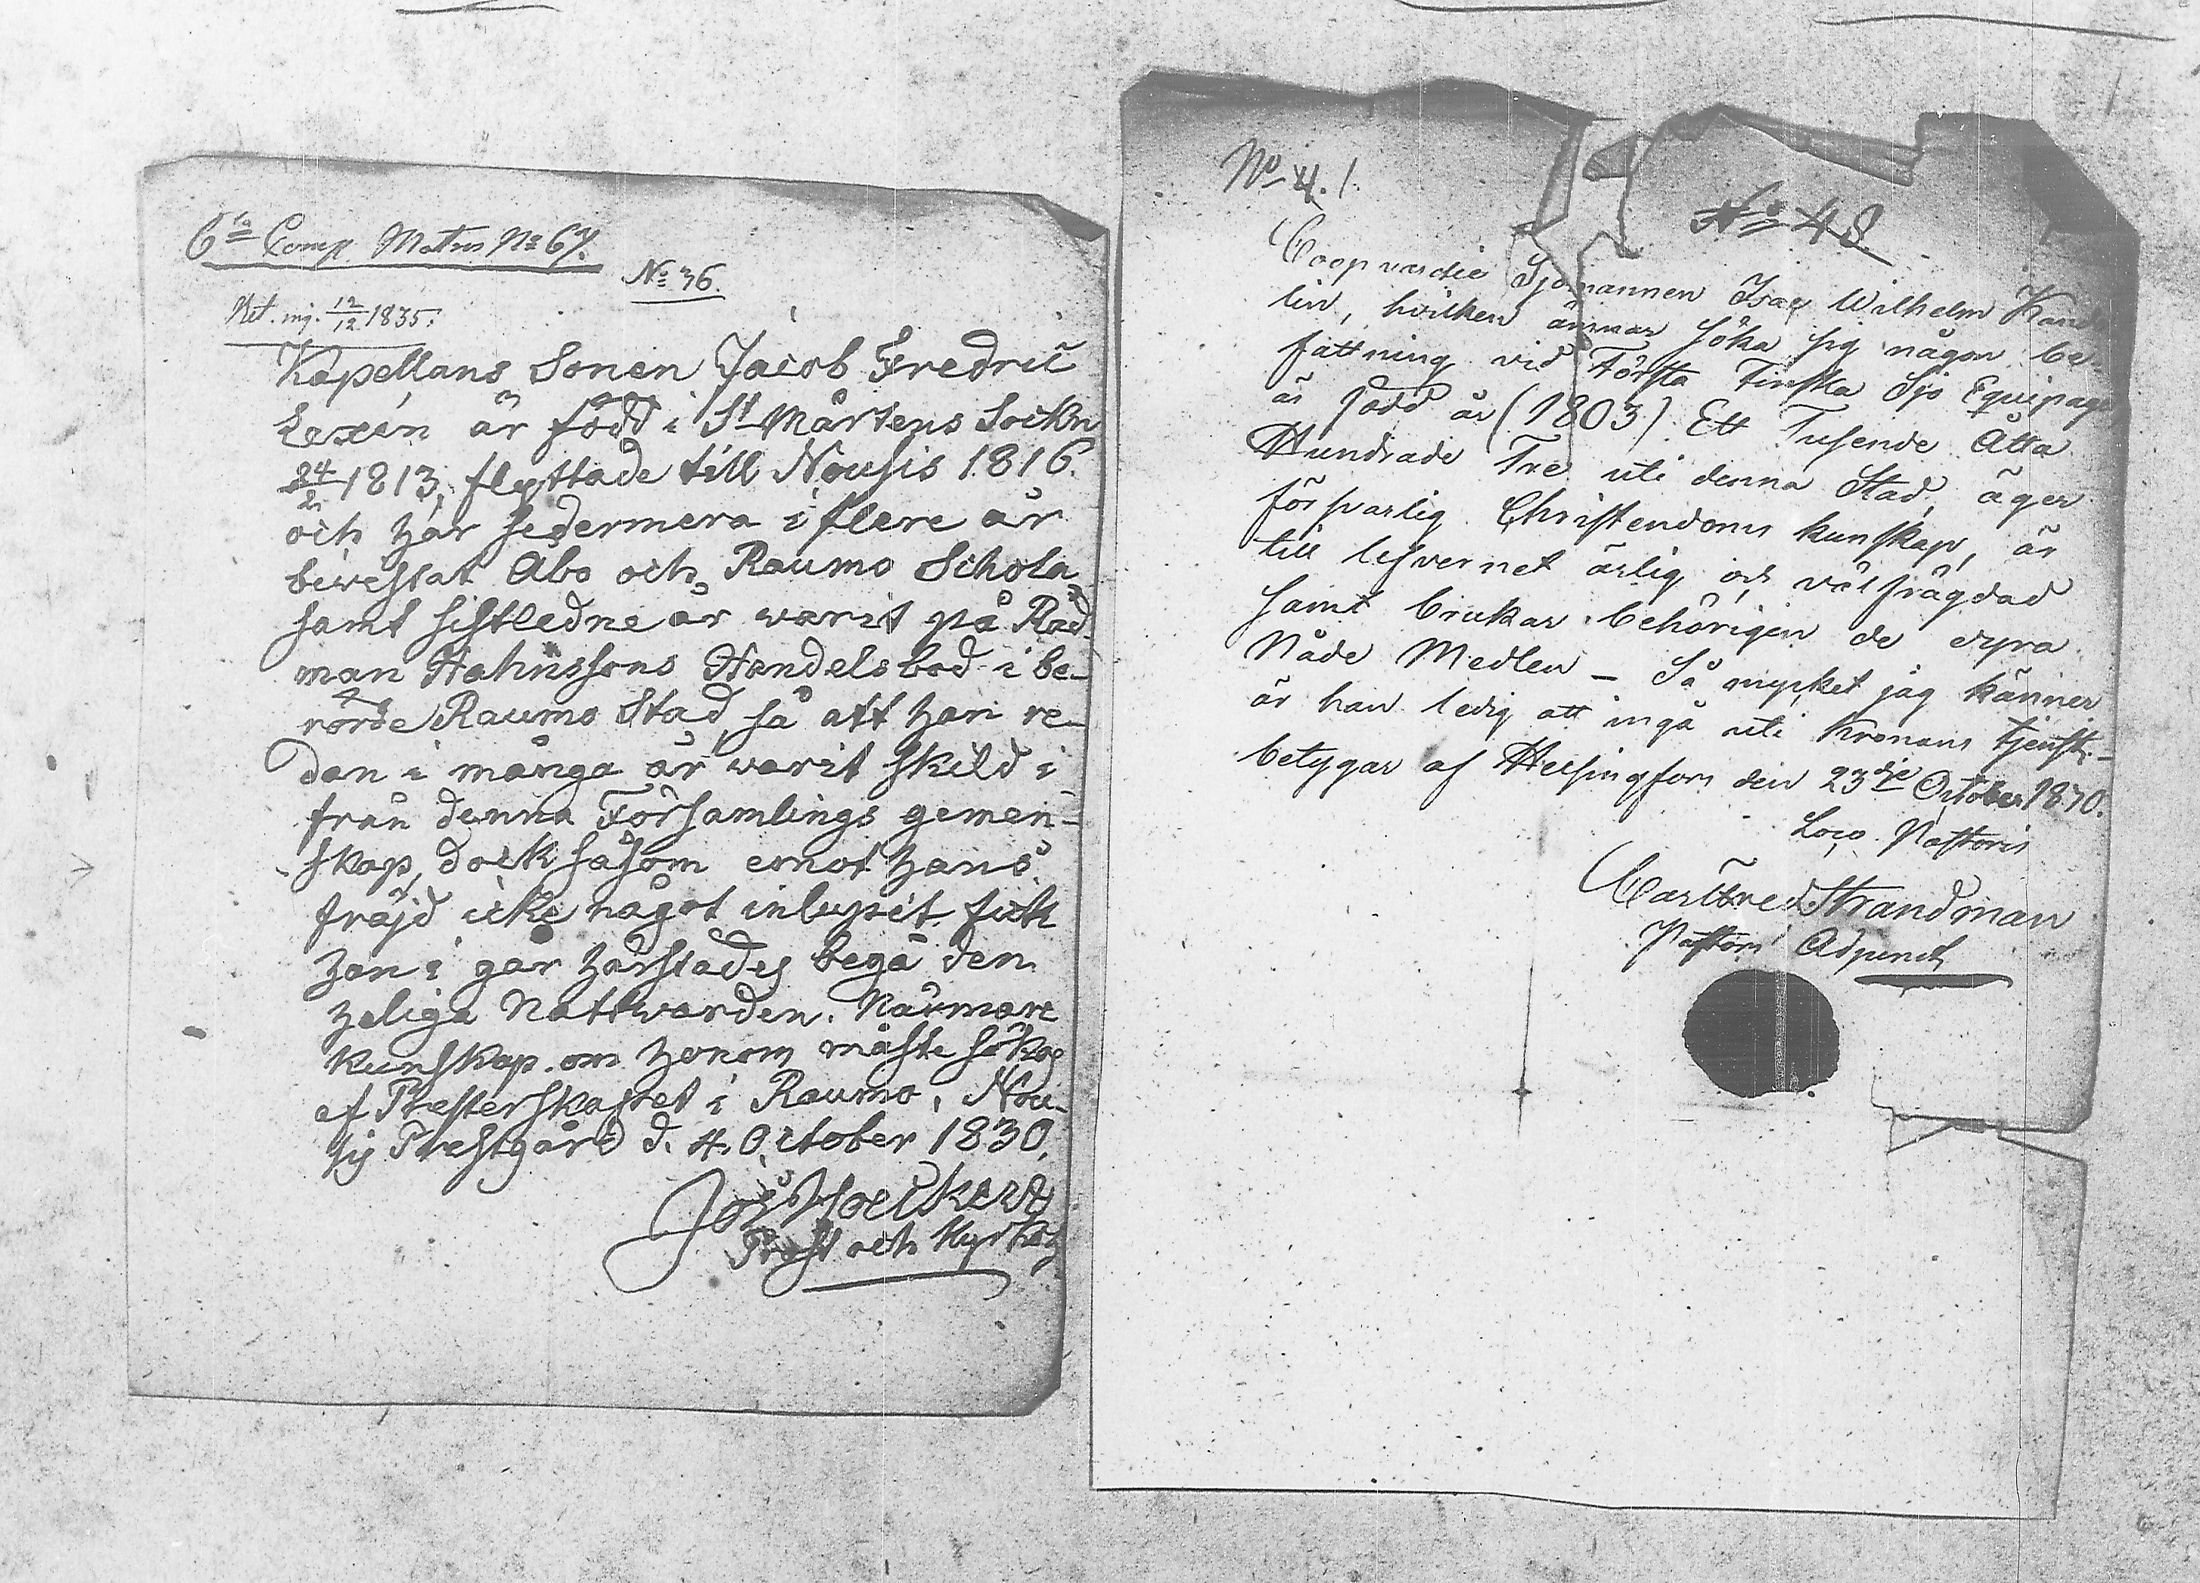 6te Comp Matus No 67.
No 36.
Ret. ing. 12/12 1835.
Kapellans Sonen Jacob Fredric
Lexén är född i St Mårtens Sockn
24/2 1813, flyttade till Nousis 1816.
och har sedermera i flere år
bevestat Åbo och Raumo Schola
samt sistledne år warit på Råd-
man Hahnssons Handelsbod i be-
rörde Raumo Stad, så att han re-
dan i många år warit skild i
från denna Församlings gemen-
skap, dock såsom emot hans
fräjd icke något inlupit, fick
han i går härstädes begå den
heliga Nattwarden. Närmare
kunskap om honom måste sökas
af Presterskapet i Raumo, Nou-
sis Prestgård d. 4. October 1830.
Prost och Kyrkoh
No 4. 1.
No 48
Coopvardie Sjömannen Isac Wilhelm Kand
lin, hvilken ämnar söka sig någon be-
fattning vid Första Finska Sjö Equipage,
är född år (1803) Ett Tusende Åtta
Hundrade Tre uti denna Stad, äger
försvarlig Christendoms kunskap, är
till lefvernet ärlig och välfrägdad
samt brukar behörigen de dyra
Nåde Medlen – Så mycket jag känner
är han ledig att ingå uti Kronans tjenst.–
betygar af Helsingfors den 23dje October 1830.
Loco Pastoris
Carl Fred Strandman
Pastors Adjunct